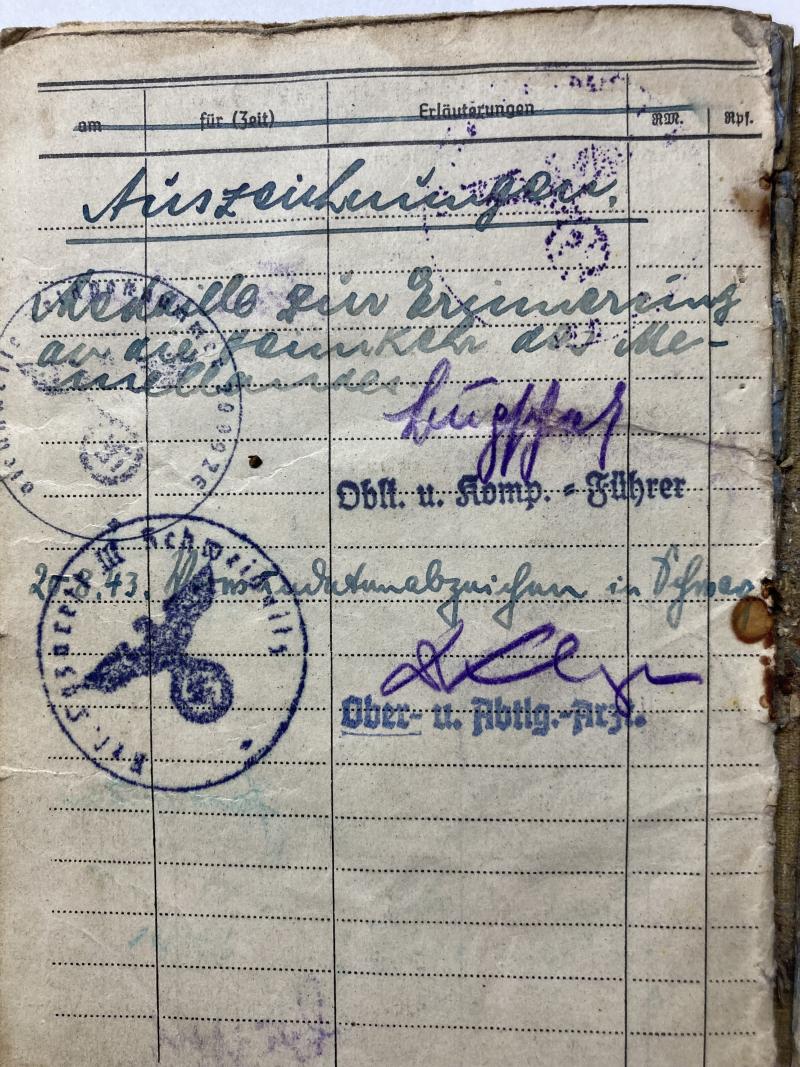 am für (Zeit) Erläuterungen RM. Rpf.
Auszeichnungen.
Medaille zur Erinnerung
an die Heimkehr des Me-
mellandes
Oblt. u. Komp.-Führer
43. Verwundetenabzeichen in Schwarz
Ober- u. Abtlg.-Arzt.
Res. Lazarett III Schweidnitz